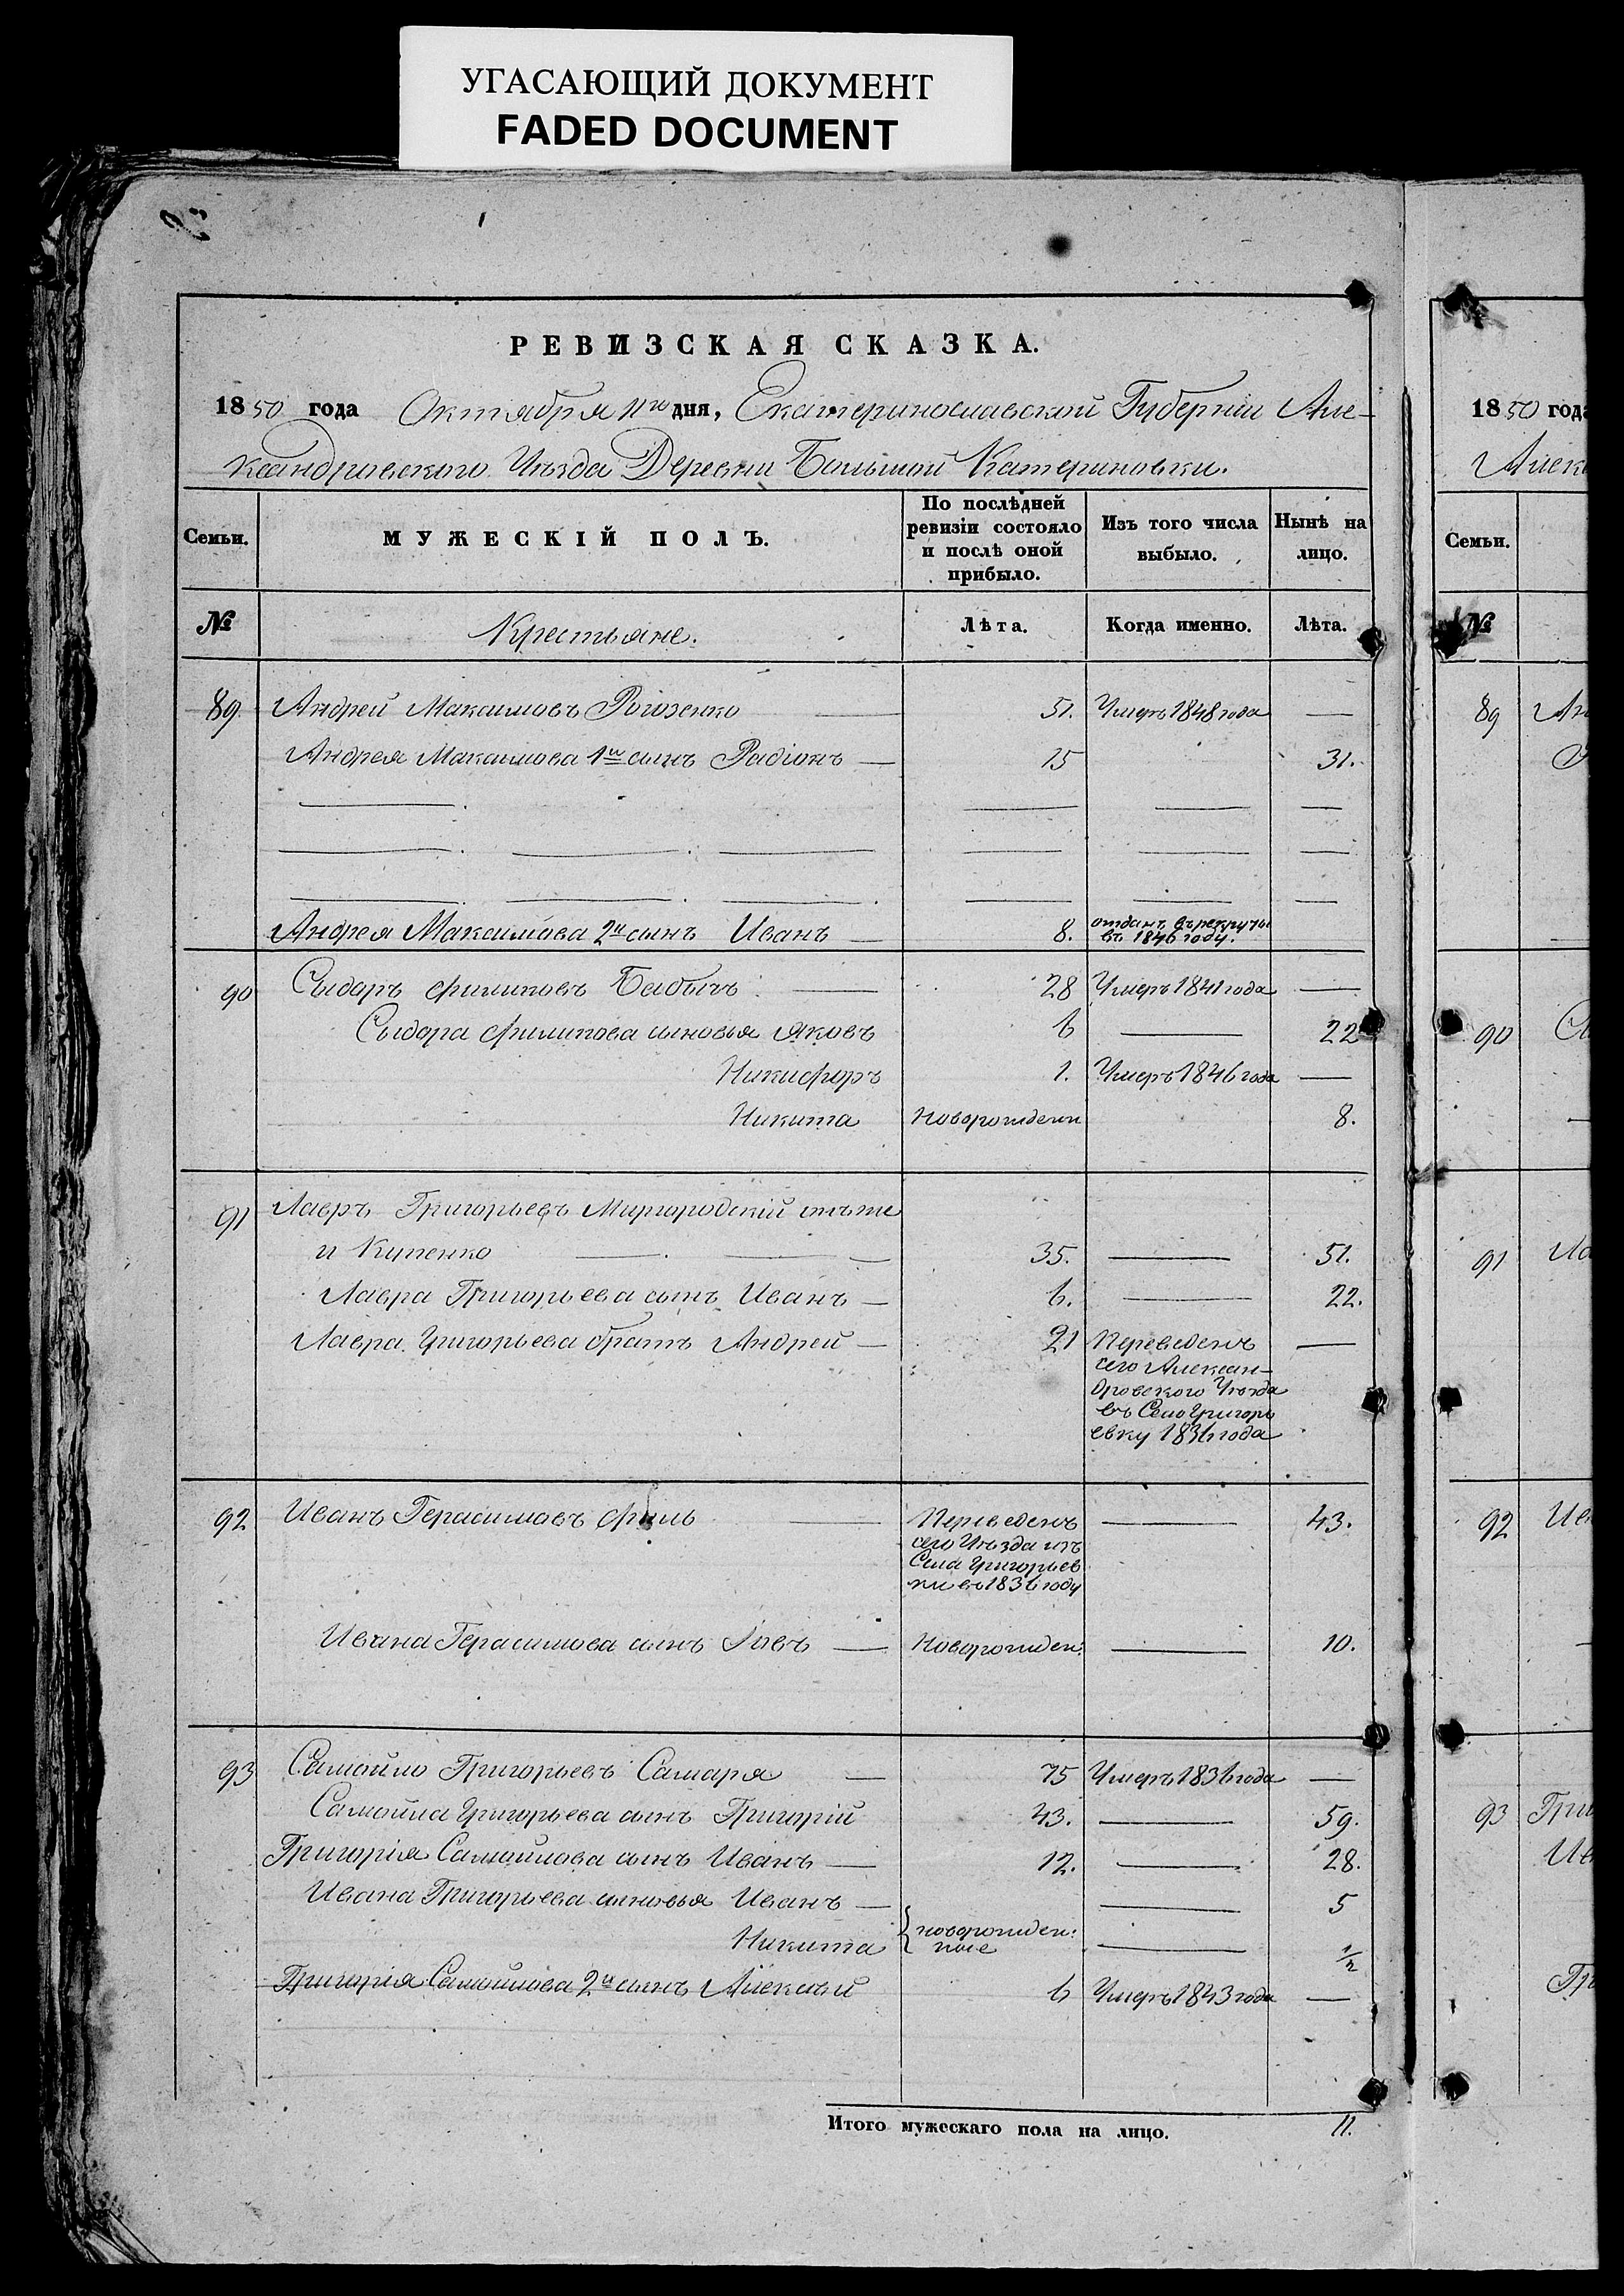 УГАСАЮЩИЙ ДОКУМЕНТ
FADED DOCUMENT
РЕВИЗСКАЯ СКАЗКА.
1850 года Октября 11го дня, Екатеринославской Губернии Але-
ксандровского Уѣзда Деревни Большой Катериновки.
Семьи. МУЖЕСКІЙ ПОЛЪ. По послѣдней ревизіи состояло и послѣ оной прибыло. Изъ того числа выбыло. Нынѣ на лицо.
№ Крестьяне. Лѣта. Когда именно. Лѣта.
89. Андрей Максимовъ Рогозенко — 51. Умеръ 1848 года —
Андрея Максимова 1й сынъ Радіонъ — 15 31.
Андрея Максимова 2й сынъ Иванъ — 8. отданъ въ рекруты
въ 1846 году.
90 Сыдоръ Филиповъ Бабычъ — 28 Умеръ 1841 года —
Сыдора Филипова сыновья Яковъ 6 — 22
Никифоръ 1. Умеръ 1846 года —
Никита Новорожденн 8.
91 Лавръ Григорьевъ Миргородскій онъ же
и Купенко — 35. — 51.
Лавра Григорьева сынъ Иванъ — 6. — 22.
Лавра Григорьева братъ Андрей — 21 Переведенъ —
сего Алексан-
дровского Уѣзда
въ Село Григорь
евку 1836 года
92 Иванъ Герасимовъ Филь — Переведенъ — 43.
сего Уѣзда изъ
Села Григорьев
ки въ 1836 году
Ивана Герасимова сынъ Іовъ — Новорожден: — 10.
93 Самойло Григорьевъ Самаря — 75 Умеръ 1836 года —
Самойла Григорьева сынъ Григорій 43. — 59.
Григорія Самойлова сынъ Иванъ — 12. — 28.
Ивана Григорьева сыновья Иванъ — 5
Никита { новорожден:
ные — 1/2
Григорія Самойлова 2й сынъ Алексѣй 6 Умеръ 1843 года —
Итого мужескаго пола на лицо. 11.
1850 года
Семьи.
№
89
90
91
92
93